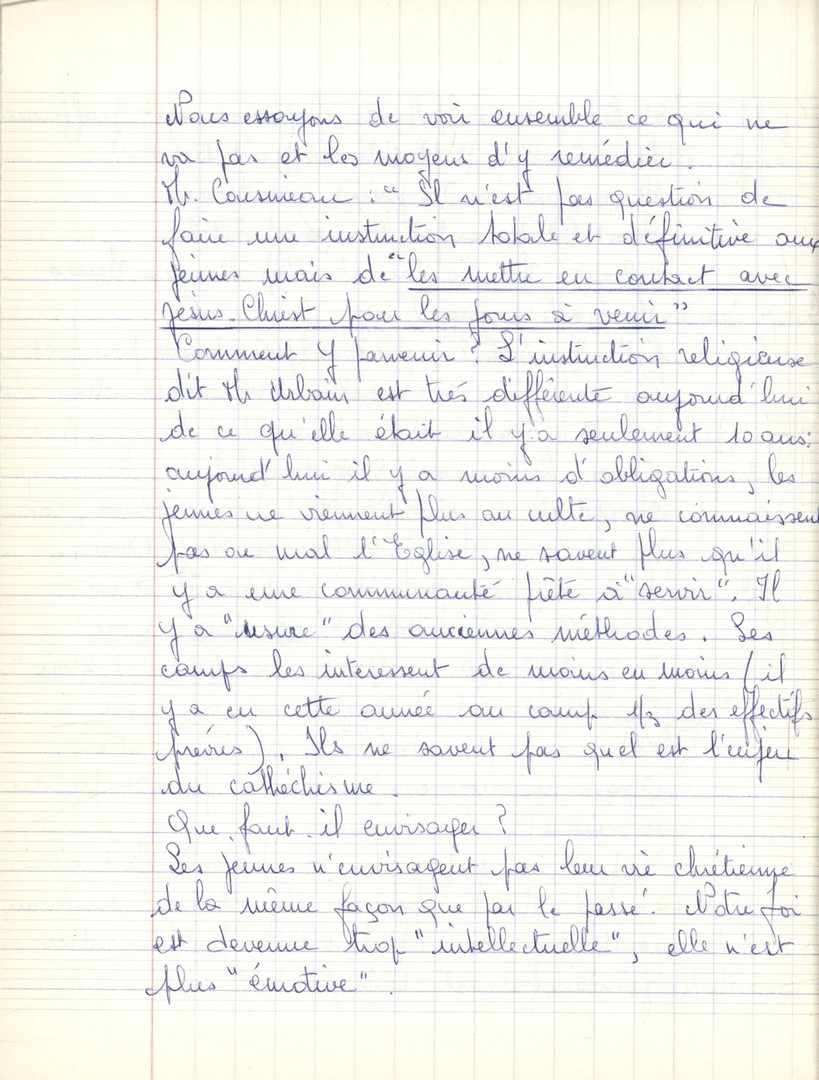 Nous essayons de voir ensemble ce qui ne
va pas et les moyens d'y remédier.
Mr. Cousineau : " Il n'est pas question de
faire une instruction totale et définitive aux
jeunes mais de "les mettre en contact avec
Jésus-Christ pour les jours à venir"
Comment y parvenir ? L'instruction religieuse
dit Mr Urbain est très différente aujourd'hui
de ce qu'elle était il y a seulement 10 ans:
aujourd'hui il y a moins d'obligations, les
jeunes ne viennent plus au culte, ne connaissent
pas ou mal l'Eglise, ne savent plus qu'il
y a une communauté prête à "servir". Il
y a "usure" des anciennes méthodes. Les
camps les interessent de moins en moins (il
y a eu cette année au camp 1/3 des effectifs
prévus). Ils ne savent pas quel est l'enjeu
du cathéchisme.
Que faut-il envisager ?
Les jeunes n'envisagent pas leur vie chrétienne
de la même façon que par le passé. Notre foi
est devenue trop "intellectuelle", elle n'est
plus "émotive".